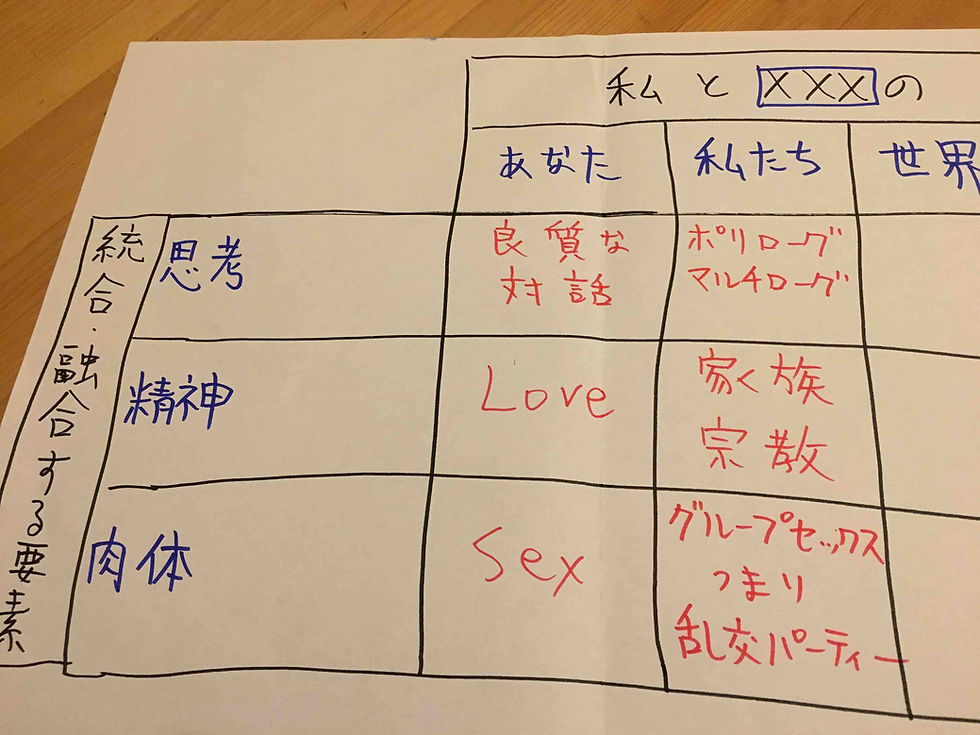 私と XXX の
あなた 私たち 世界
統合・融合する要素
思考
良質な
対話
ポリローグ
マルチローグ
精神
Love
家族
宗教
肉体
Sex
グループセックス
つまり
乱交パーティー